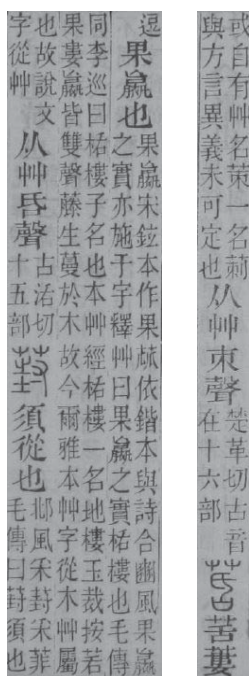 或自有艸名茦一名莿
與方言異義未可定也
从艸朿聲
楚革切古音
在十六部
䒷苦蔞
逗
果蠃也
果蠃宋鉉本作果蓏依鍇本與詩合豳風果蠃
之實亦施于宇釋艸曰果蠃之實栝樓也毛傳
同李巡曰栝樓子名也本艸經栝樓一名地樓玉裁按若
果婁蠃皆雙聲藤生蔓於木故今爾雅本艸字從木艸屬
也故說文
字從艸
从艸昏聲
古活切
十五部
葑須從也
邶風采葑采菲
毛傳曰葑須也